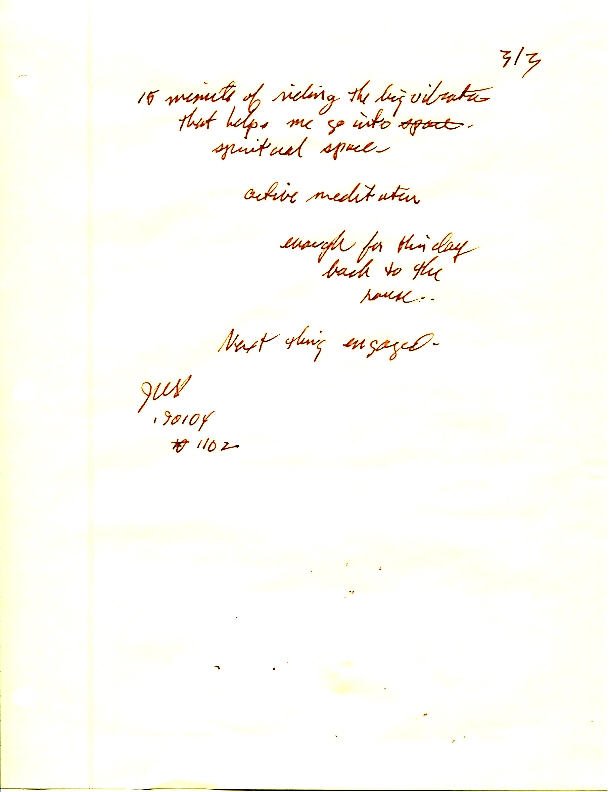 3/3
15 minute of riding the big vibrator
that helps me go into space.
spiritual space
active meditation
enough for this day
back to the
house..
Next thing engaged-
190104
1102